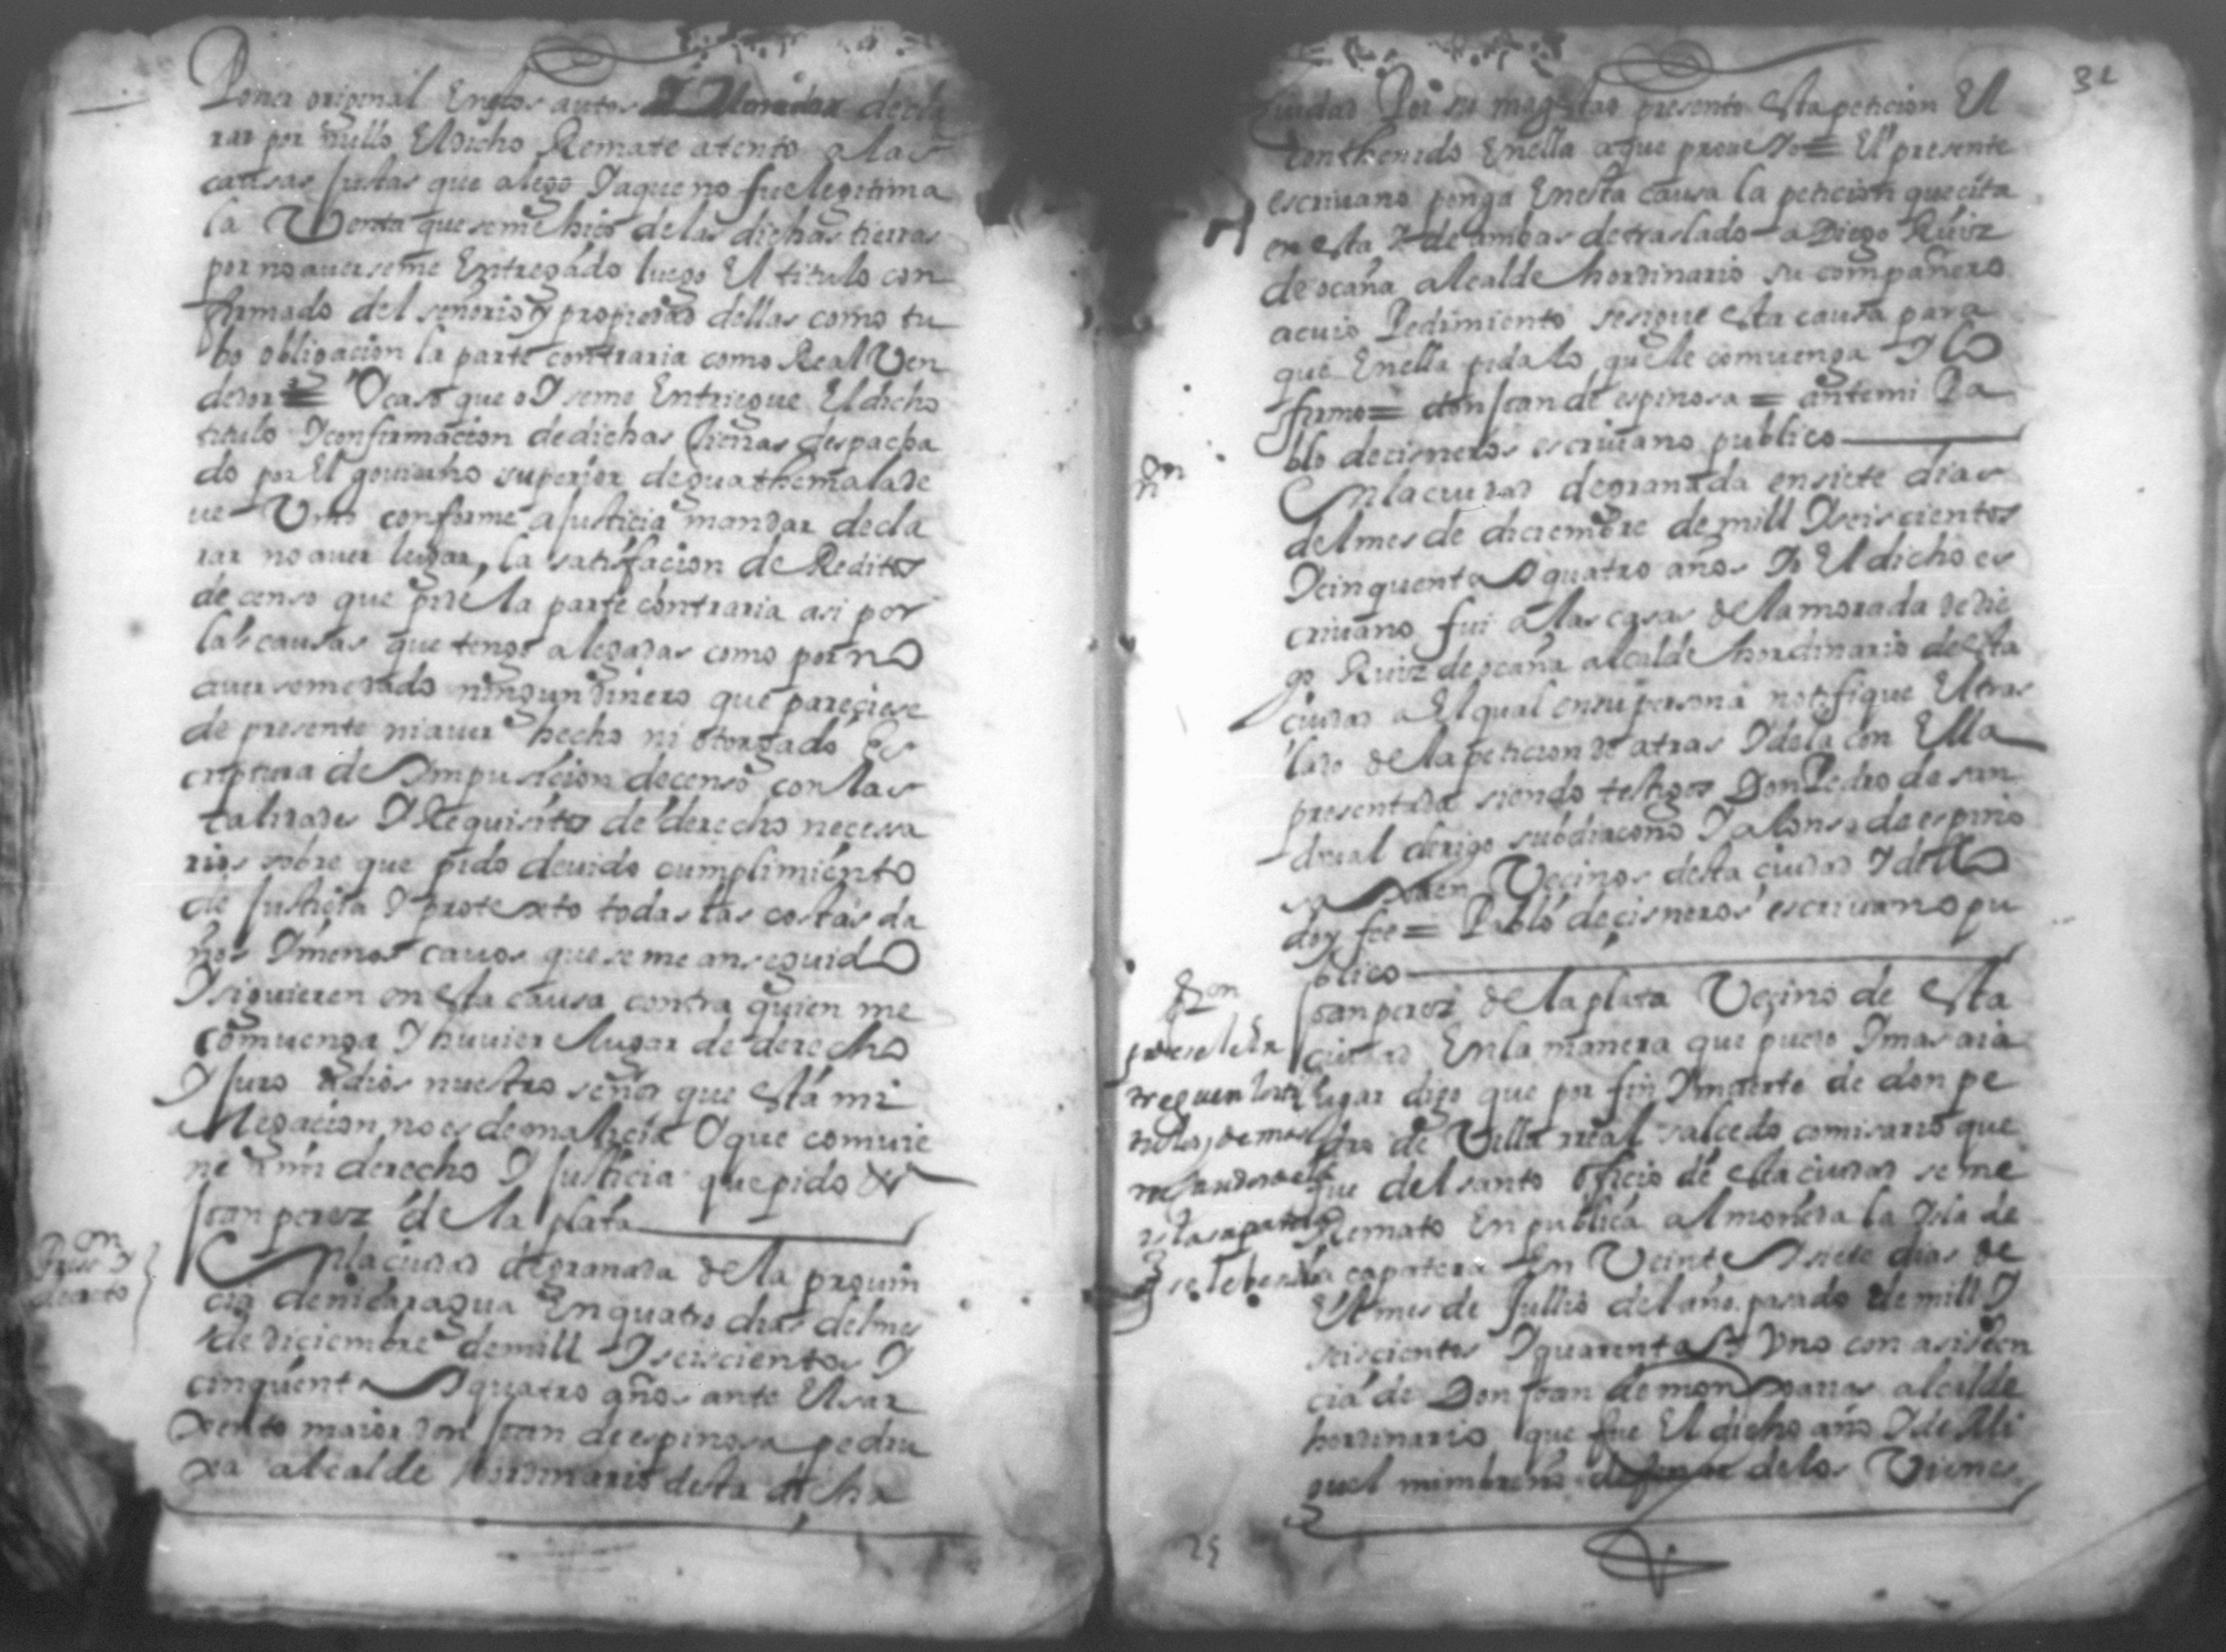 Poner original Enestos autos declа
rar por nullo El dicho Remate atento a las
causas Justas que alego Y a que no fue legitima
la Venta que se me hiço de las dichas tierras
por no auerseme Entregado luego El titulo con
firmado del señorio y propiedad dellas como tu
bo obligacion la parte contraria como Real Ven
dedor = O caso que oY se me Entriegue El dicho
titulo Y confirmacion de dichas tierras despacha
do por El gouierno superior de guathemala de
ue Vmd conforme a Justicia mandar decla
rar no auer lugar, la satisfacion de Reditos
de censo que pide la parte contraria asi por
las causas que tengo alegadas como por no
auerseme dado ningun dinero que pareçiese
de presente ni auer hecho ni otorgado Es
criptura de Impusicion de censo con las
calidades Y Requisitos de derecho necesa
rios sobre que pido deuido cumplimiento
de Justicia Y protexto todas las costas da
ños Y menos cauos que se me an seguido
Y siguieren en esta causa contra quien me
comuenga Y huuiere lugar de derecho
Y Juro a dios nuestro señor que esta mi
alegacion no es de malicia O que comuie
ne a mi derecho Y Justicia que pido &
Joan perez de la plata
En la ciudad de granada de la prouin
cia de nicaragua En quatro dias del mes
de diciembre de mill Y seiscientos Y
cinquenta Y quatro años ante El sar
xento maior don Joan de espinosa pedru
xa alcalde hordinario desta dicha
31
ciudad Por su magestad presento esta peticion El
conthenido Enella a que proueYo = El presente
escriuano ponga Enesta causa la peticion que cita
en esta Y de ambas de traslado a Diego Ruiz
de ocaña alcalde hordinario su compañero
a cuio Pedimiento se sigue esta causa para
que Enella pida lo que le comuenga Y lo
firmo = don Joan de espinosa = ante mi Pa
blo de cisneros escriuano publico
En la ciudad de granada en siete dias
del mes de diciembre de mill Y seiscientos
Y cinquenta Y quatro años Yo El dicho es
criuano fui a las casas de la morada de die
go Ruiz de ocaña alcalde hordinario de esta
ciudad a El qual en su persona notifique El tras
lado de la peticion de atras Y de la con Ella
presentada siendo testigos Don Pedro de san
doual clerigo subdiacono Y alonso de espino
sa Vecinos desta ciudad Y dello
doy fee = Pablo de cisneros escriuano pu
blico
Joan perez de la plata Veçino de esta
ciudad En la manera que puedo Y mas aia
lugar digo que por fin Y muerte de don pe
dro de Villa rreal salcedo comisario que
fue del santo oficio de esta ciudad se me
Remato En publica almoneda la Ysla de
la çapatera En Veinte Y siete dias de
El mes de Jullio del año pasado de mill Y
seiscientos Y quarenta Y Vno con asisten
cia de Don Joan de alcalde
hordinario que fue El dicho año Y de Mi
guel mimbreño defensor de los Vienes
25